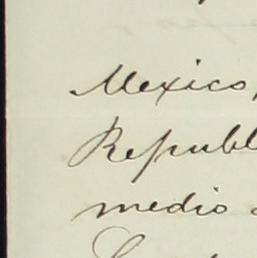 Mexico,
Republ
medio